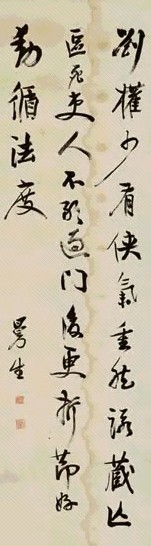 劉權少有俠氣重然諾藏亡
匿死吏人不敢過門後更折節好
動循法度
生